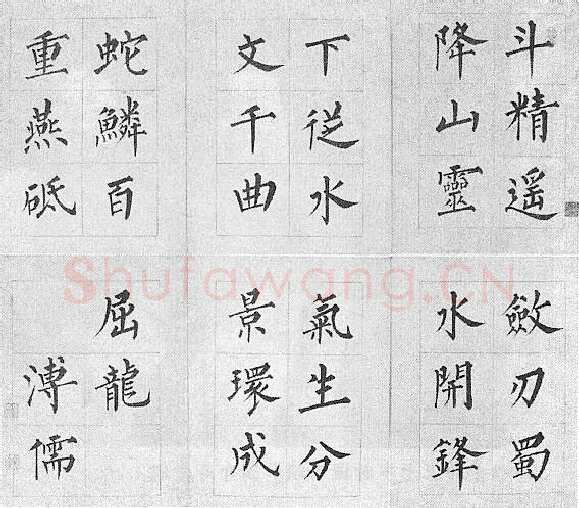 斗精遙
降山靈
下從水
文千曲
蛇鱗百
重燕砥
斂刃蜀
水開鋒
氣生分
景環成
屈龍
溥儒
Shufawang.CN